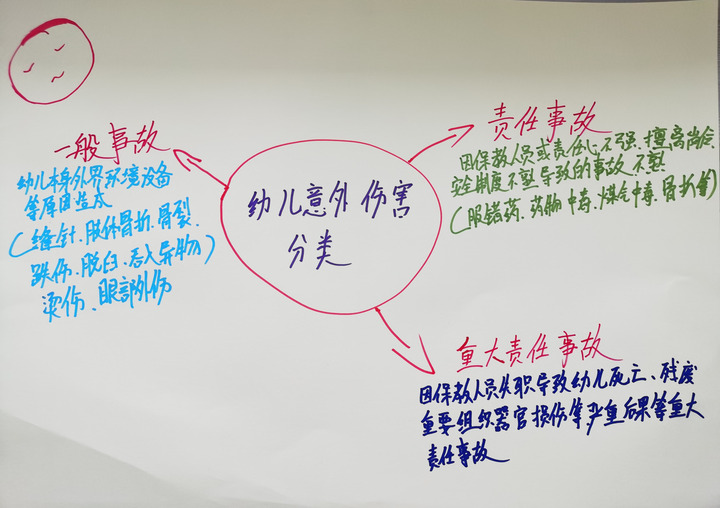 幼儿意外伤害
分类
一般事故
幼儿本身外界环境设备
等原因造成
(缝针、肢体骨折、骨裂、
跌伤、脱臼、吞入异物)
烫伤、眼部外伤
责任事故
因保教人员或责任心不强、擅离岗位、
安全制度不 导致的事故 不
(服错药、药物中毒、煤气中毒、骨折等)
重大责任事故
因保教人员失职导致幼儿死亡、残废
重要组织器官损伤等严重后果等重大
责任事故